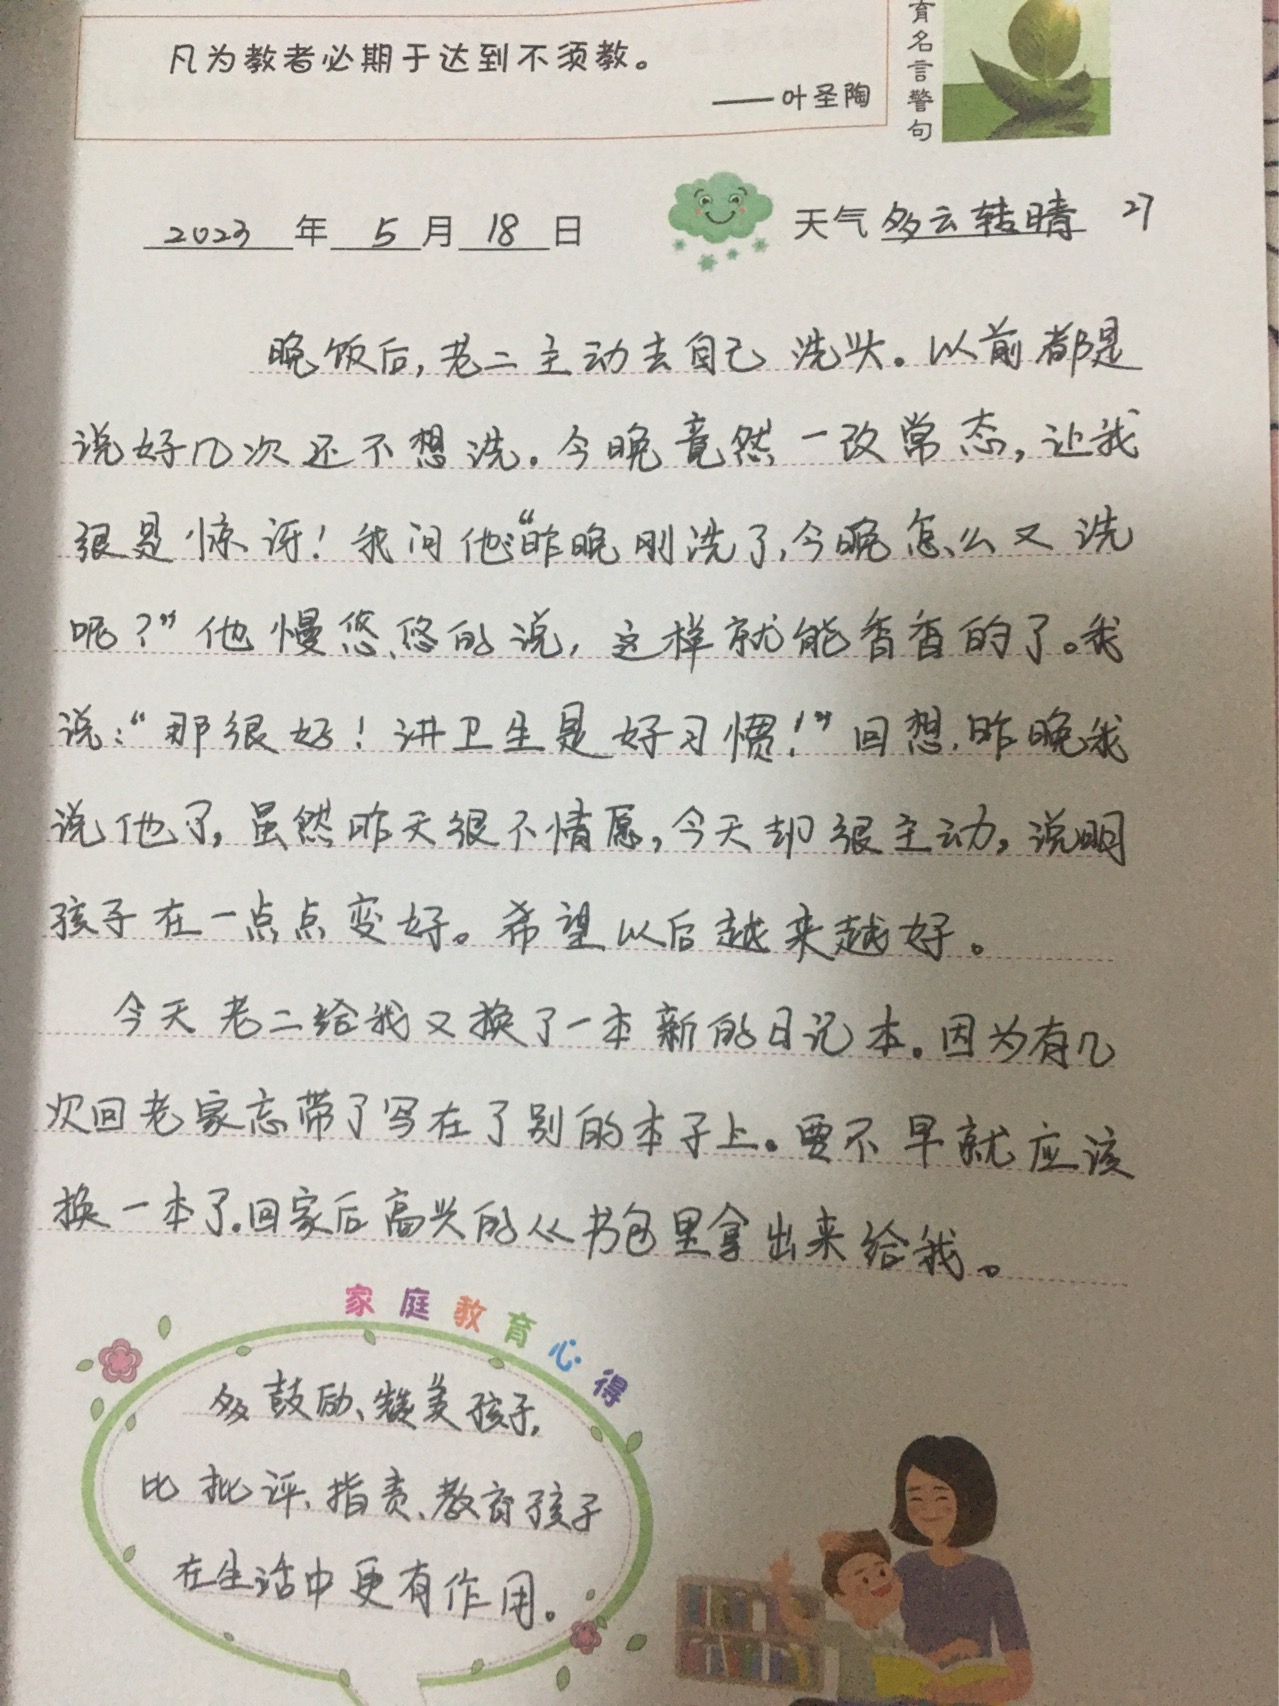 凡为教者必期于达到不须教。
——叶圣陶
育名言警句
2023年5月18日 天气 多云转晴 27
晚饭后,老二主动去自己洗头。以前都是
说好几次还不想洗。今晚竟然一改常态,让我
很是惊讶!我问他:“昨晚刚洗了,今晚怎么又洗
呢?”他慢悠悠的说,这样就能香香的了。我
说:“那很好!讲卫生是好习惯!”回想昨晚我
说他了,虽然昨天很不情愿,今天却很主动。说明
孩子在一点点变好。希望以后越来越好。
今天老二给我又换了一本新的日记本。因为有几
次回老家忘带了写在了别的本子上。要不早就应该
换一本了。回家后高兴的从书包里拿出来给我。
家庭教育心得
多鼓励、赞美孩子,
比批评、指责、教育孩子
在生活中更有作用。